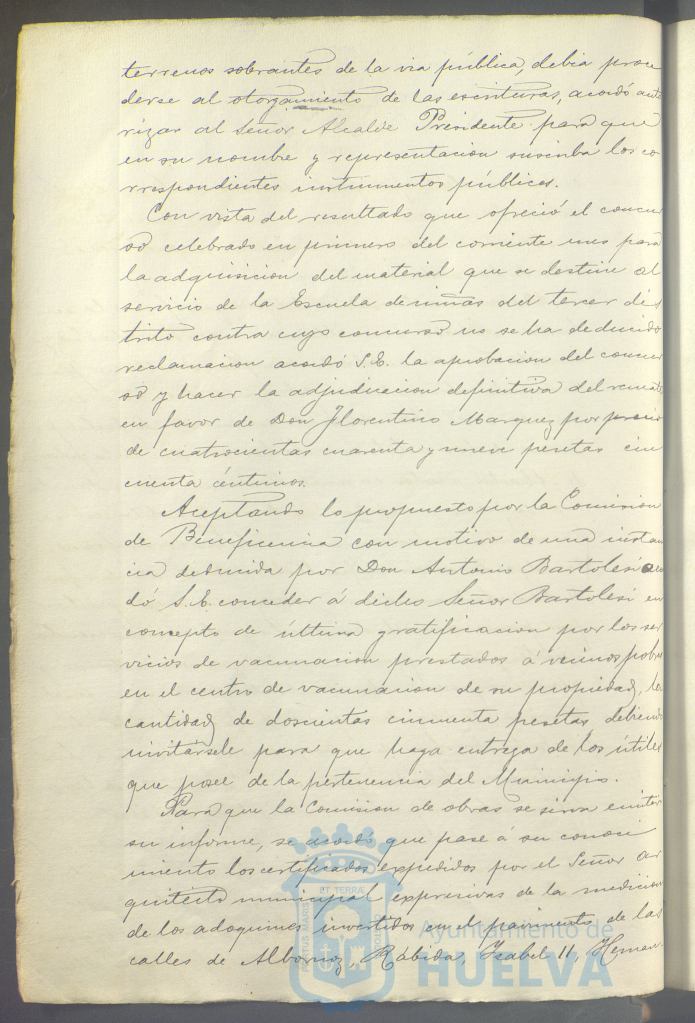 terrenos sobrantes de la via pública, debia proce
derse al otorgamiento de las escrituras, acordó auto
rizar al Señor Alcalde Presidente para que
en su nombre y representacion suscriba los co
rrespondientes instrumentos públicos.
Con vista del resultado que ofreció el concur
so celebrado en primero del corriente mes para
la adquisicion del material que se destine al
servicio de la Escuela de niñas del tercer dis
trito contra cuyo concurso no se ha deducido
reclamacion acordó S.E. la aprobacion del concur
so y hacer la adjudicacion definitiva del remate
en favor de Don Florentino Marquez por precio
de cuatrocientas cuarenta y nueve pesetas cin
cuenta céntimos.
Aceptando lo propuesto por la Comision
de Beneficencia con motivo de una instan
cia deducida por Don Antonio Bartolesi acor
dó S.E. conceder á dicho Señor Bartolesi en
concepto de última gratificacion por los ser
vicios de vacunacion prestados á vecinos pobres
en el centro de vacunacion de su propiedad, la
cantidad de doscientas cincuenta pesetas debiendo
invitársele para que haga entrega de los útiles
que posee de la pertenencia del Municipio.
Para que la Comision de obras se sirva emitir
su informe, se acordó que pase á su conoci
miento los certificados expedidos por el Señor Ar
quitecto municipal expresivas de la medicion
de los adoquines invertidos en el pavimento de las
calles de Albornoz, Rábida, Isabel II, Hernan
PORTUS MARIS ET TERRÆ CUSTODIA
Ayuntamiento de
HUELVA